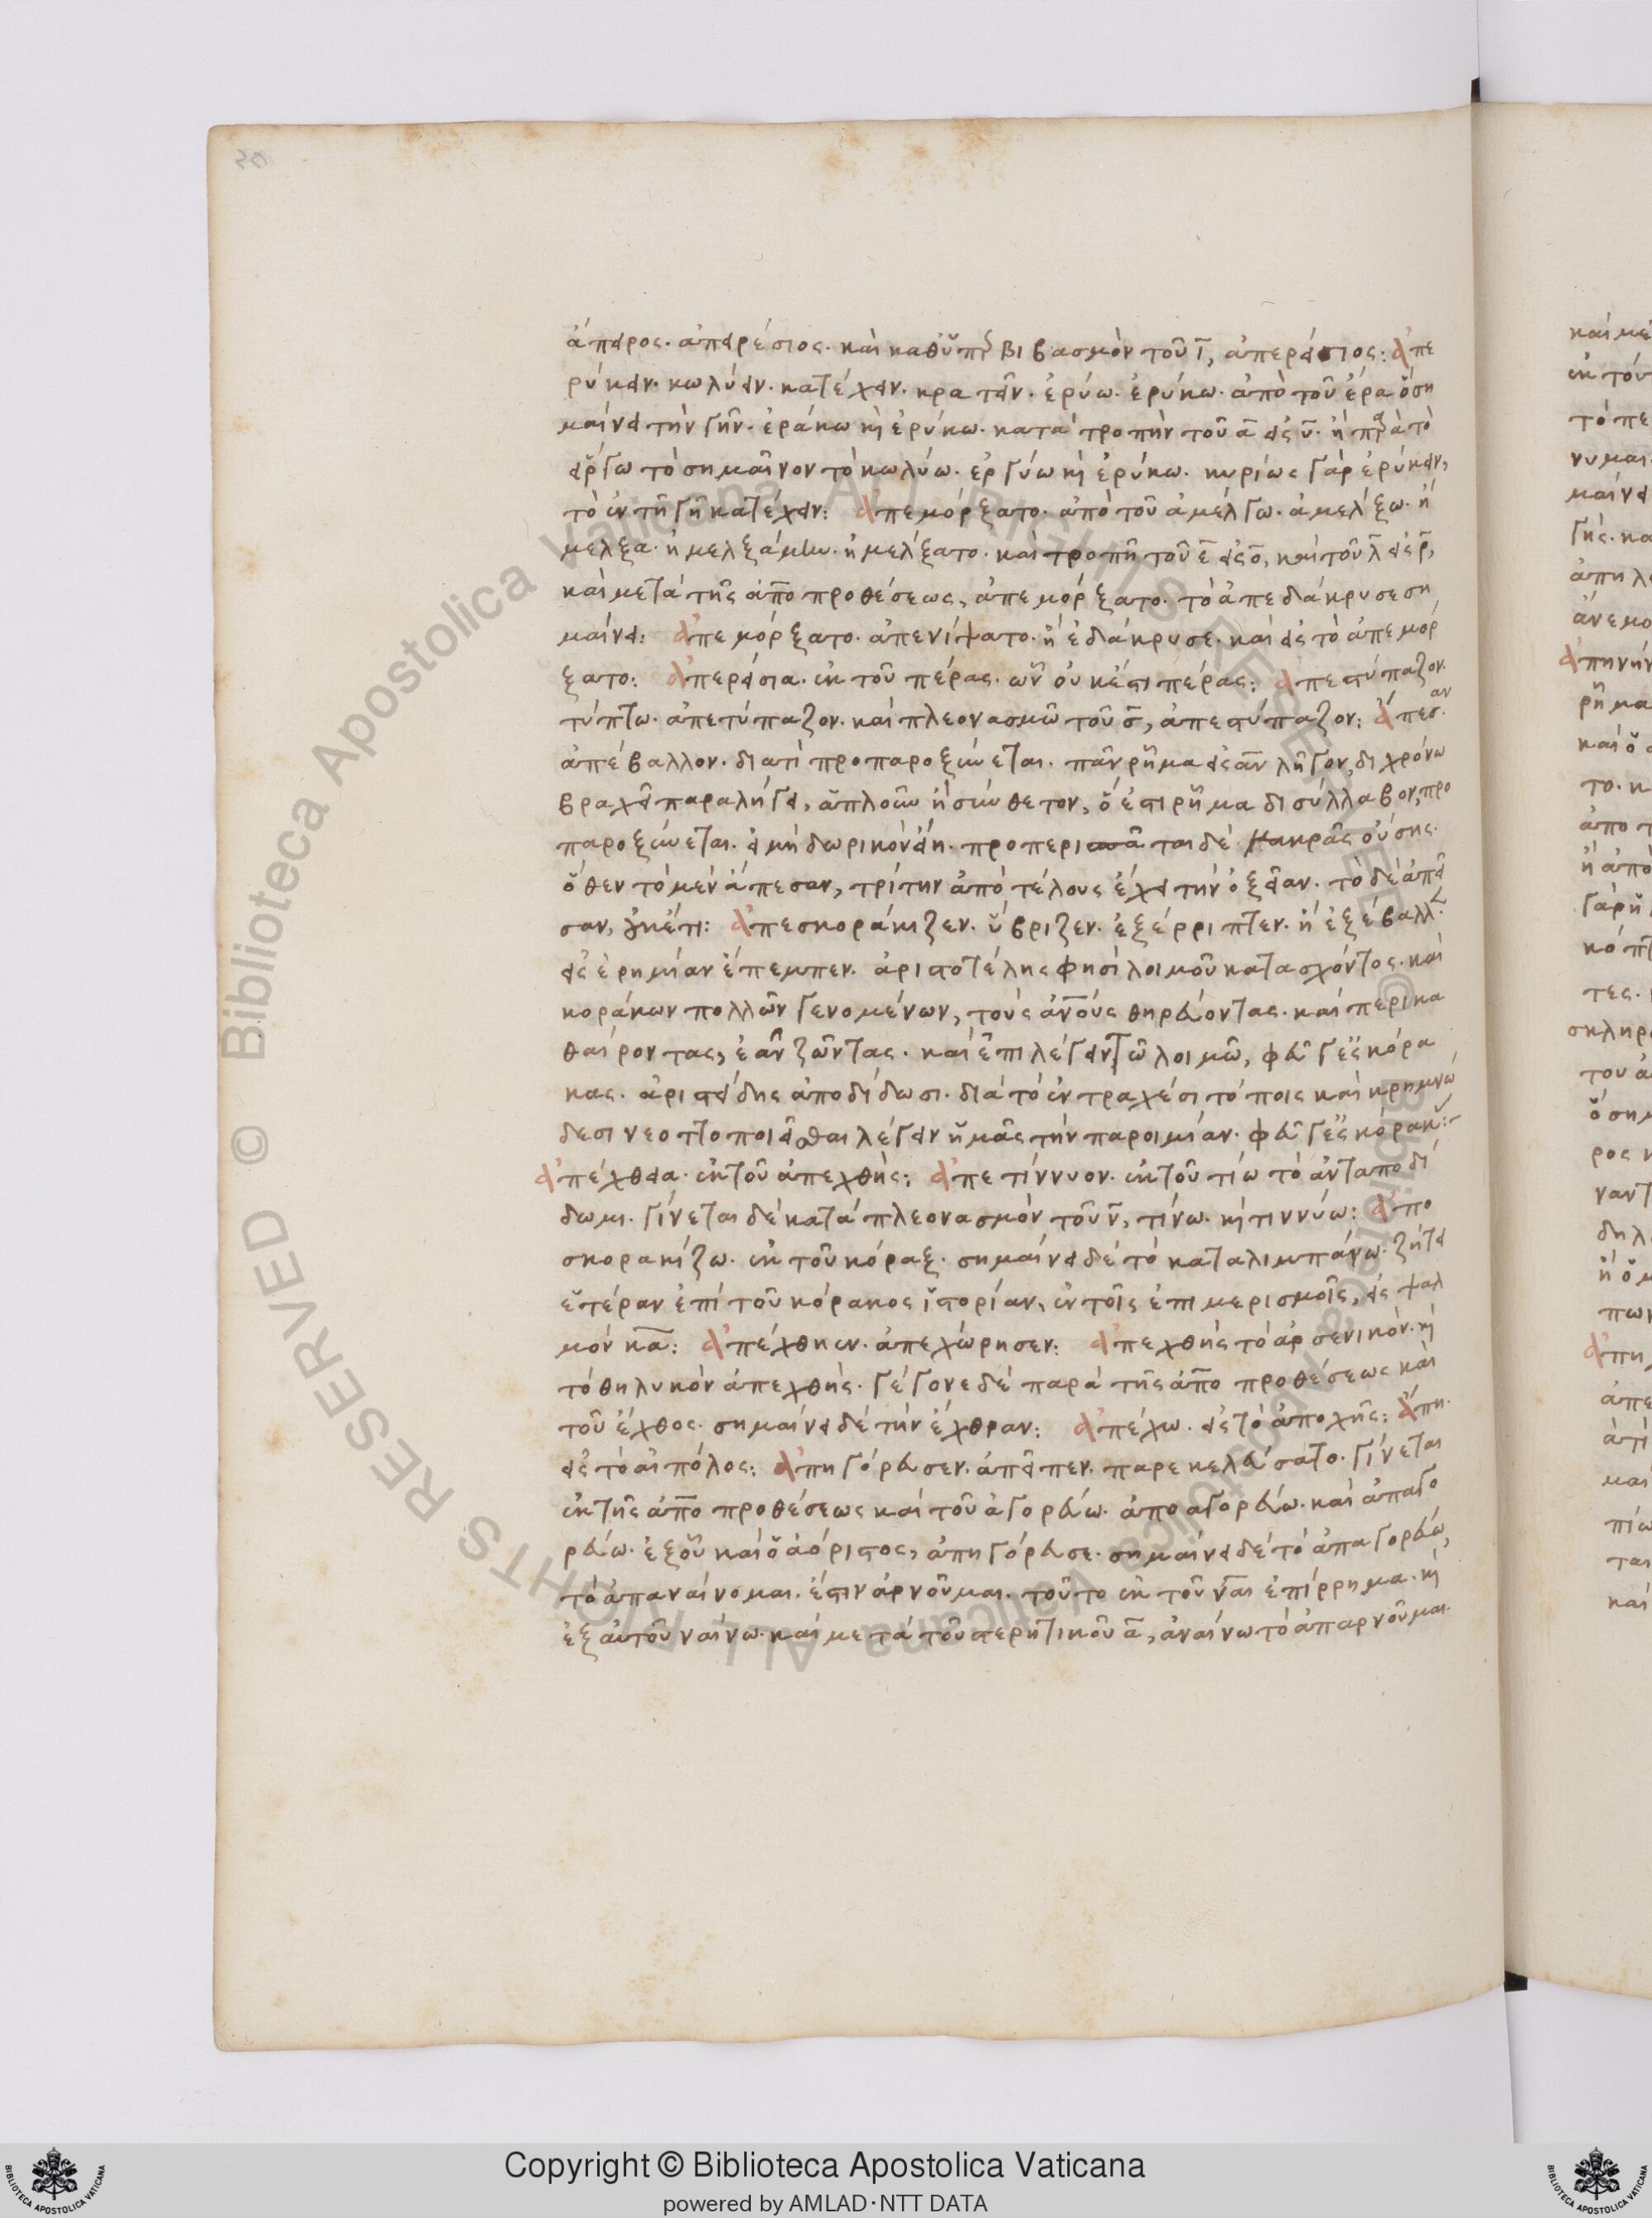 ἄπειρος· ἀπειρέσιος· καὶ καθ' ὑπερβιβασμὸν τοῦ ι, ἀπερείσιος: ἀπε
ρύκειν· κωλύειν· κατέχειν· κρατεῖν· ἐρύω· ἐρύκω· ἀπὸ τοῦ ἔρα ὃ ση
μαίνει τὴν γῆν· ἐράκω κὶ ἐρύκω· κατὰ τροπὴν τοῦ α εἰς υ· ἢ παρὰ τὸ
εἴργω τὸ σημαῖνον τὸ κωλύω· ἐργύω κὶ ἐρύκω· κυρίως γὰρ ἐρύκειν,
τὸ ἐν τῇ γῇ κατέχειν: ἀπεμόρξατο· ἀπὸ τοῦ ἀμέλγω· ἀμέλξω· ἤ
μελξα· ἠμελξάμην· ἠμέλξατο· καὶ τροπῇ τοῦ ε εἰς ο, καὶ τοῦ λ εἰς ρ,
καὶ μετὰ τῆς ἀπο προθέσεως, ἀπεμόρξατο· τὸ ἀπεδάκρυσε ση
μαίνει: ἀπεμόρξατο· ἀπενίψατο· ἢ ἐδάκρυσε· καὶ εἰς τὸ ἀπεμόρ
ξατο: ἀπερείσια· ἐκ τοῦ πέρας· ὧν οὐκ ἔστι πέρας: ἀπεστύπαζον·
τύπτω· ἀπετύπαζον· καὶ πλεονασμῶ τοῦ σ, ἀπεστύπαζον: ἄπεσαν·
ἀπέβαλλον· διατί προπαροξύνεται· πᾶν ῥῆμα εἰς αν λῆγον, διχρόνω
βραχεῖ παραλήγει, ἁπλοῦν ἢ σύνθετον, ὅ ἐστι ῥῆμα δισύλλαβον, προ
παροξύνεται· εἰ μὴ δωρικὸν εἴη· προπερισπᾶται δὲ μακρᾶς οὔσης·
ὅθεν τὸ μὲν ἄπεσαν, τρίτην ἀπὸ τέλους ἔχει τὴν ὀξεῖαν· τὸ δὲ ἀπεῖ
σαν, οὐκέτι: ἀπεσκοράκιζεν· ὕβριζεν· ἐξέρριπτεν· ἢ ἐξέβαλλ
εἰς ἐρημίαν ἔπεμπεν· ἀριστοτέλης φησὶ λοιμοῦ κατασχόντος· καὶ
κοράκων πολλῶν γενομένων, τοὺς ἀνους θηρεύοντας· καὶ περικα
θαίροντας, ἐᾶν ζῶντας· καὶ ἐπιλέγειν τῶ λοιμῶ, φεῦγε ἐς κόρα
κας· ἀριστείδης ἀποδίδωσι· διὰ τὸ ἐν τραχέσι τόποις καὶ κρημνώ
δεσι νεοττοποιεῖσθαι λέγειν ἡμᾶς τὴν παροιμίαν· φεῦγε ἐς κόρακ:
ἀπέχθεια· ἐκ τοῦ ἀπεχθής: ἀπετίννυον· ἐκ τοῦ τίω τὸ ἀνταποδί
δωμι· γίνεται δὲ κατὰ πλεονασμὸν τοῦ ν, τίνω· κὶ τιννύω: ἀπο
σκορακίζω· ἐκ τοῦ κόραξ· σημαίνει δὲ τὸ καταλιμπάνω· ζήτει
ἑτέραν ἐπὶ τοῦ κόρακος ἱστορίαν, ἐν τοῖς ἐπιμερισμοῖς, εἰς ψαλ
μὸν κα: ἀπέχθηεν· ἀπεχώρησεν: ἀπεχθὴς τὸ ἀρσενικόν· κὶ
τὸ θηλυκὸν ἀπεχθής· γέγονε δὲ παρὰ τῆς ἀπο προθέσεως καὶ
τοῦ ἔχθος· σημαίνει δὲ τὴν ἔχθραν: ἀπέχω· εἰς τὸ ἀποχῆς: ἄπη·
εἰς τὸ αἰπόλος: ἀπηγόρευσεν· ἀπεῖπεν· παρεκελεύσατο· γίνεται
ἐκ τῆς ἀπο προθέσεως καὶ τοῦ ἀγορεύω· ἀποαγορεύω· καὶ ἀπαγο
ρεύω· ἐξ οὗ καὶ ὁ ἀόριστος, ἀπηγόρευσε· σημαίνει δὲ τὸ ἀπαγορεύω,
τὸ ἀπαναίνομαι· ἔστιν ἀρνοῦμαι· τοῦτο ἐκ τοῦ ναι ἐπίρρημα· κὶ
ἐξ αὐτοῦ ναίνω· καὶ μετὰ τοῦ στερητικοῦ α, ἀναίνω τὸ ἀπαρνοῦμαι·
© Biblioteca Apostolica Vaticana ALL RIGHTS RESERVED
Copyright © Biblioteca Apostolica Vaticana
powered by AMLAD・NTT DATA